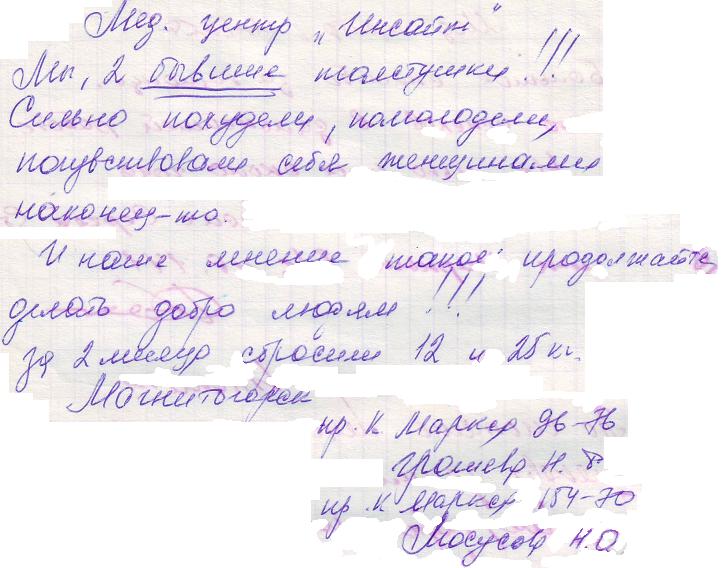 Мед. центр „Инсайт"
Мы, 2 бывшие толстушки!!!
Сильно похудели, помолодели,
почувствовали себя женщинами
наконец-то.
И наше мнение такое: продолжайте
делать добро людям!!!
За 2 месяца сбросили 12 и 25 кг.
Магнитогорск
пр. К Маркса 96-76
Н.
пр. К Маркса 154-70
Н.О.